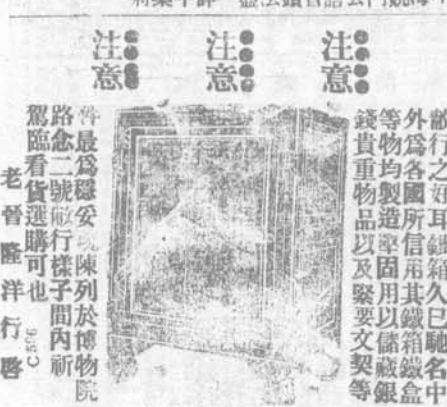 注意
注意
注意
敝行之好耳鐵箱久已馳名中
外爲各國所信用其鐵箱鐵盒
等物均製造堅固用以儲藏銀
錢貴重物品以及緊要文契等
件最爲穩妥現陳列於博物院
路念二號敝行樣子間內祈
駕臨看貨選購可也
老晉隆洋行啓
C 556